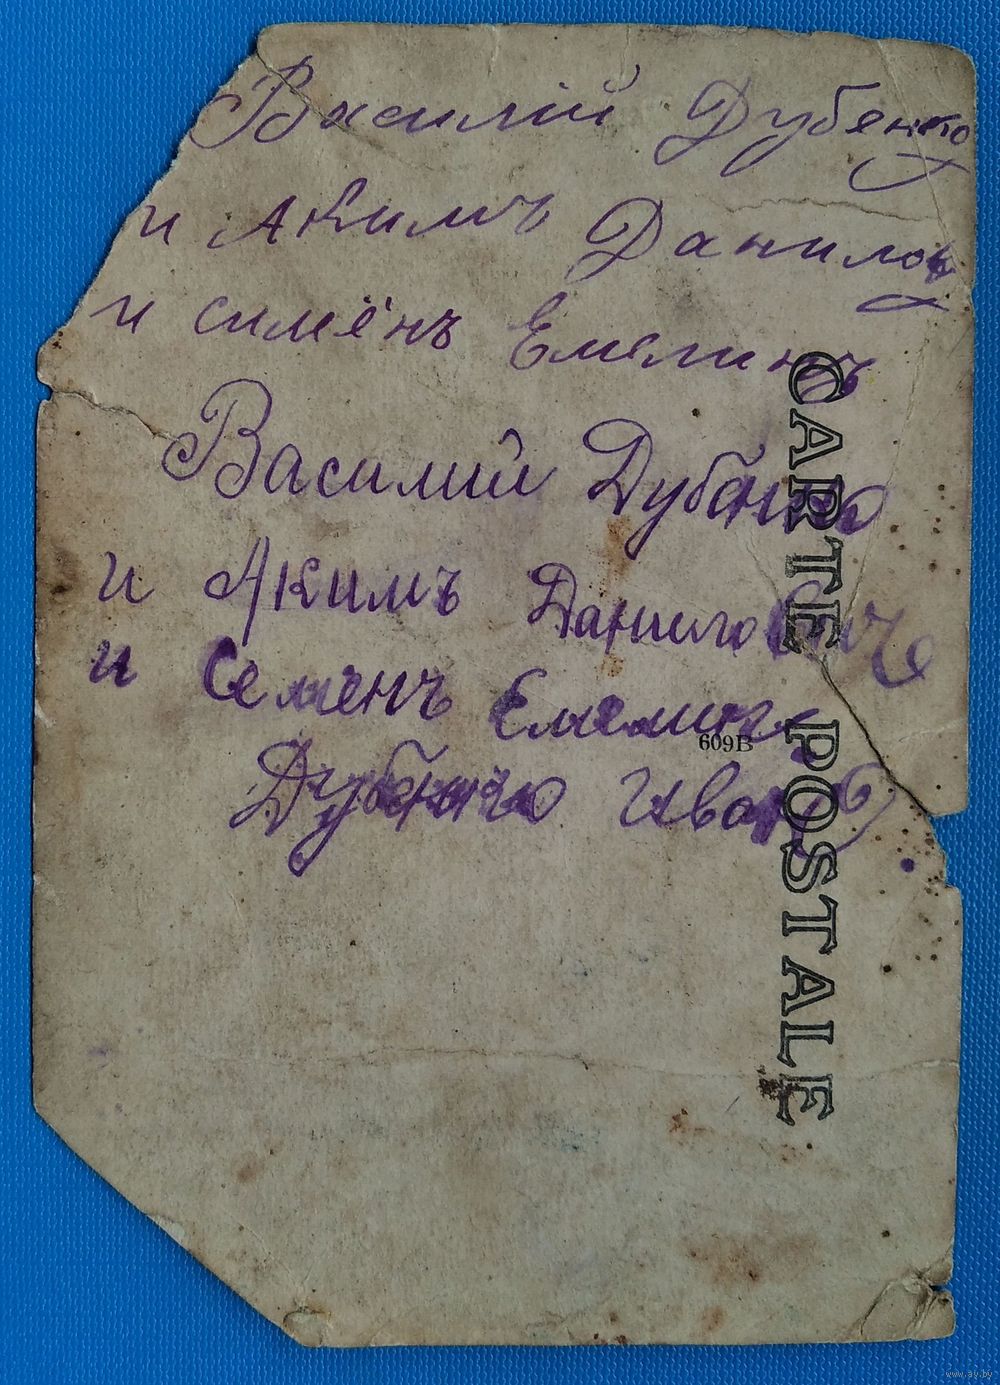 Василій Дубенко
и Акимъ Данилов
и симёнъ Емелинъ
Василий Дубенко
и Акимъ
и Семенъ Емелинъ
Дубенко Иван
CARTE POSTALE
609B
www.ay.by